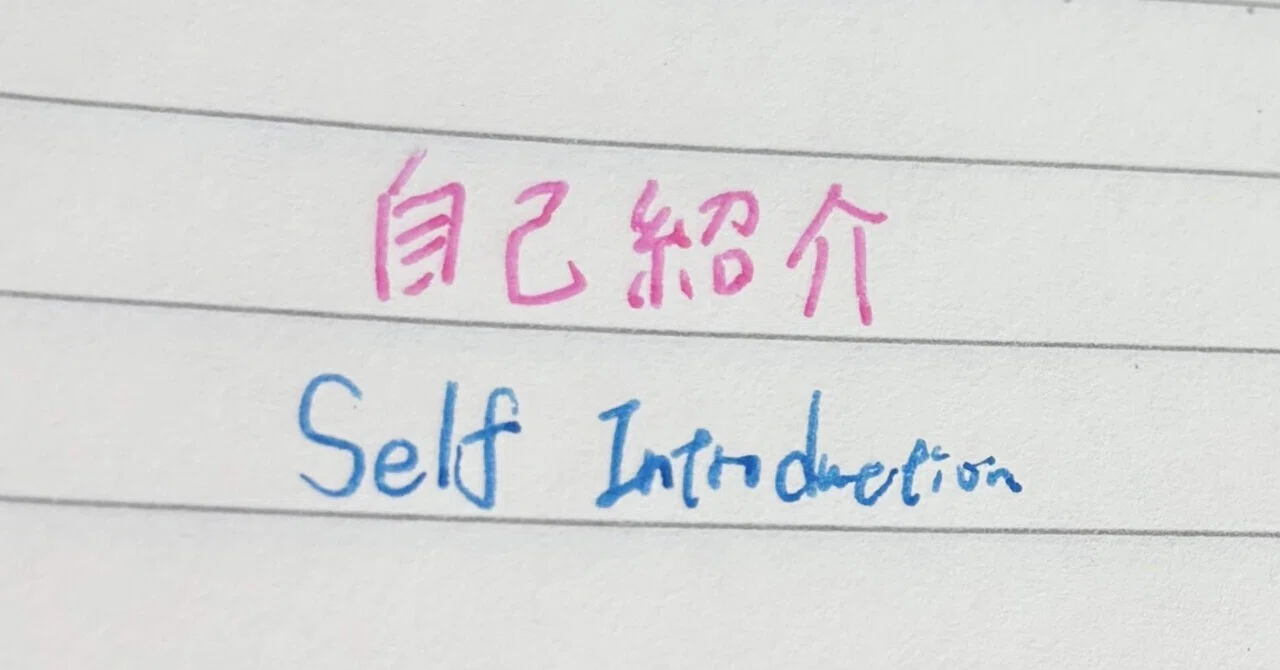 自己紹介
Self Introduction